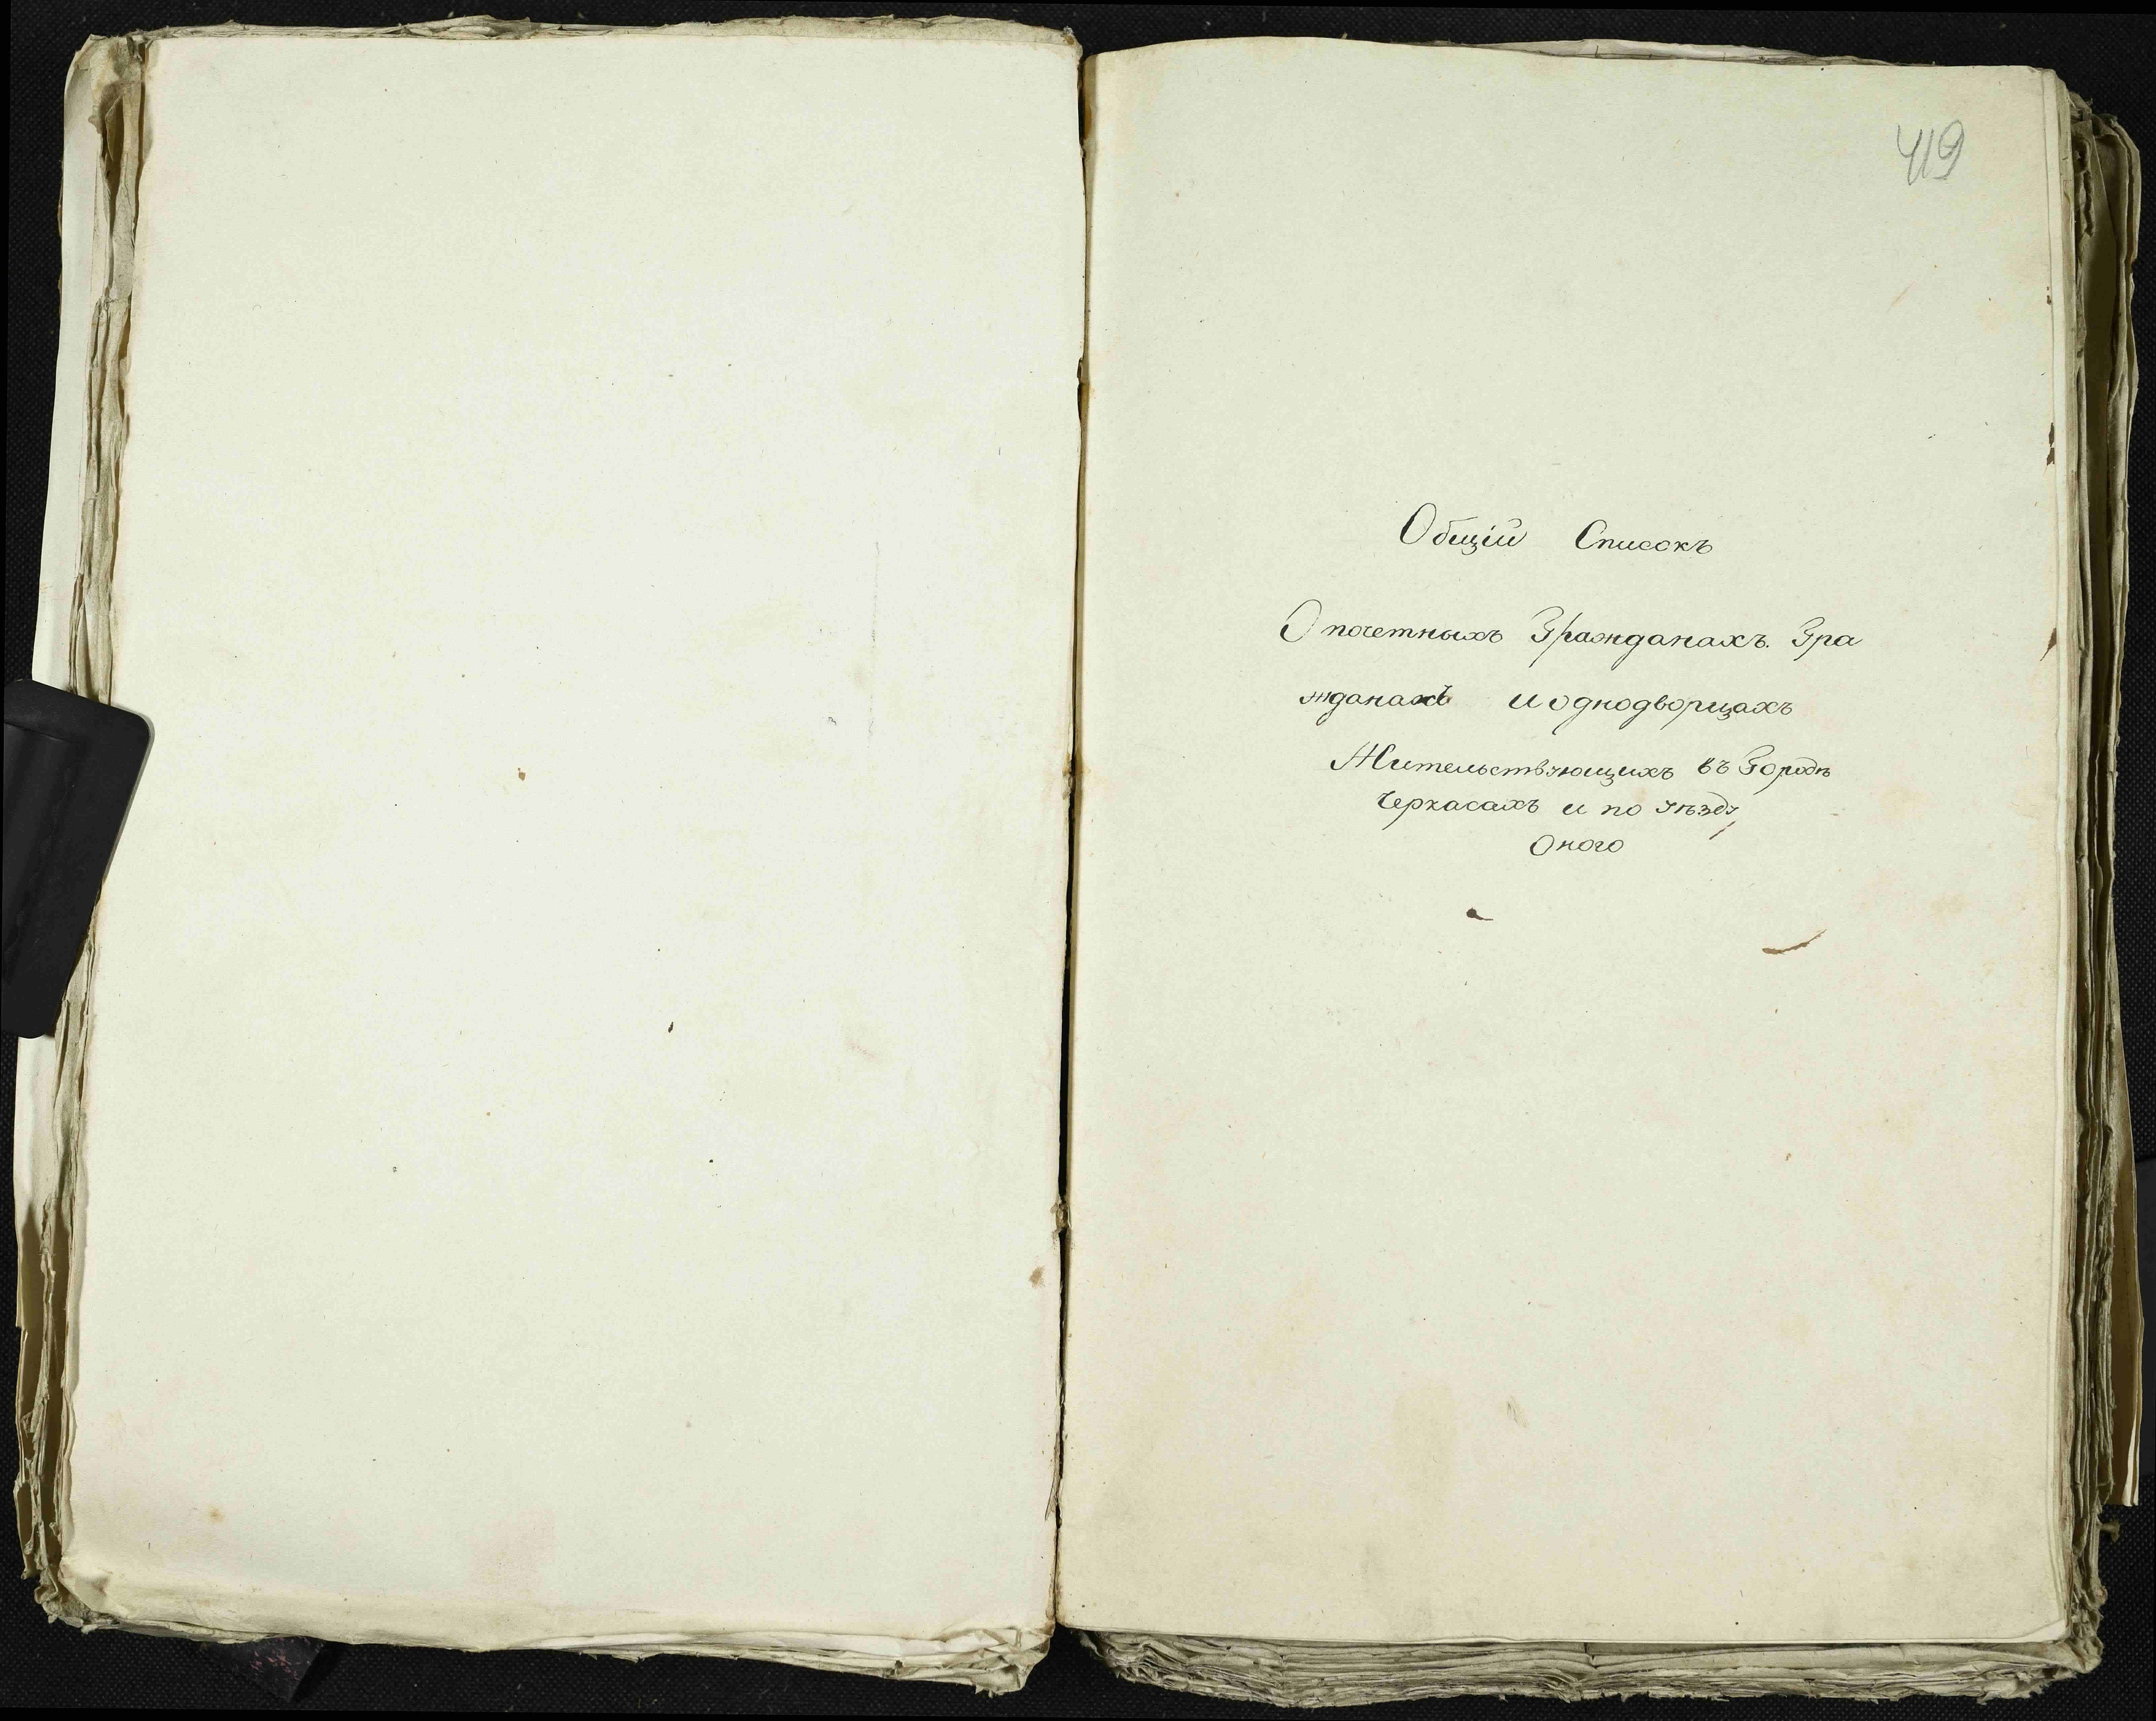 419
Общій Списокъ
О почетныхъ Гражданахъ. Гра
жданахъ и однодворцахъ
Жительствующихъ въ Городѣ
Черкасахъ и по уѣзду
Оного